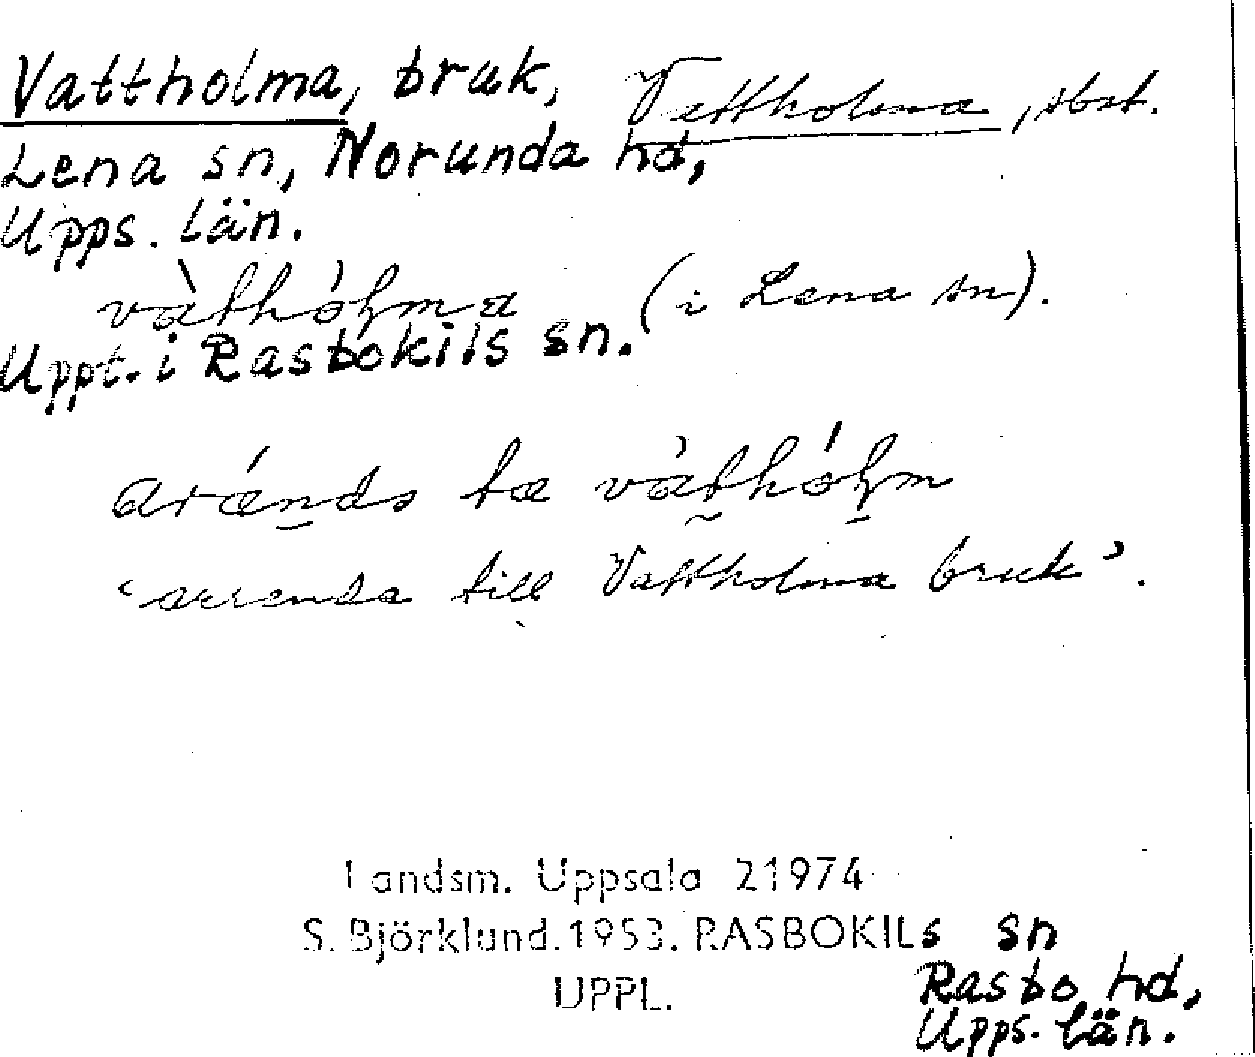 Vattholma, bruk, Vattholma, sbst.
Lena sn, Norunda hd,
Upps. län.
(i Lena sn).
Uppt. i Rasbokils sn.
ta
‘arrenda till Vattholma bruk’.
Landsm. Uppsala 21974
S. Björklund. 1953. RASBOKILs sn
UPPL.
Rasbo hd,
Upps. län.